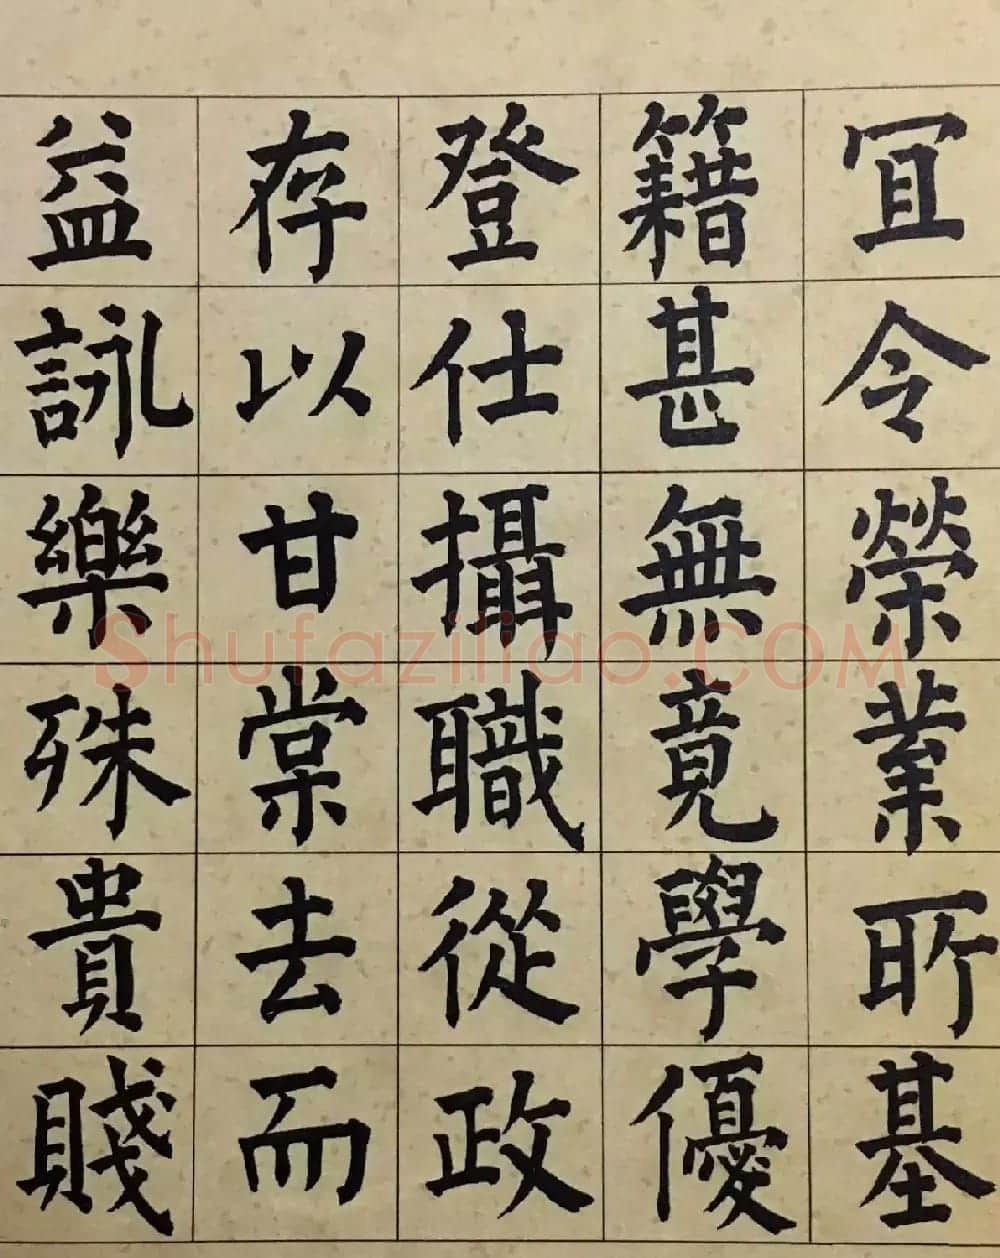 宜令榮業所基
籍甚無竟學優
登仕攝職從政
存以甘棠去而
益詠樂殊貴賤
Shufaziliao.COM